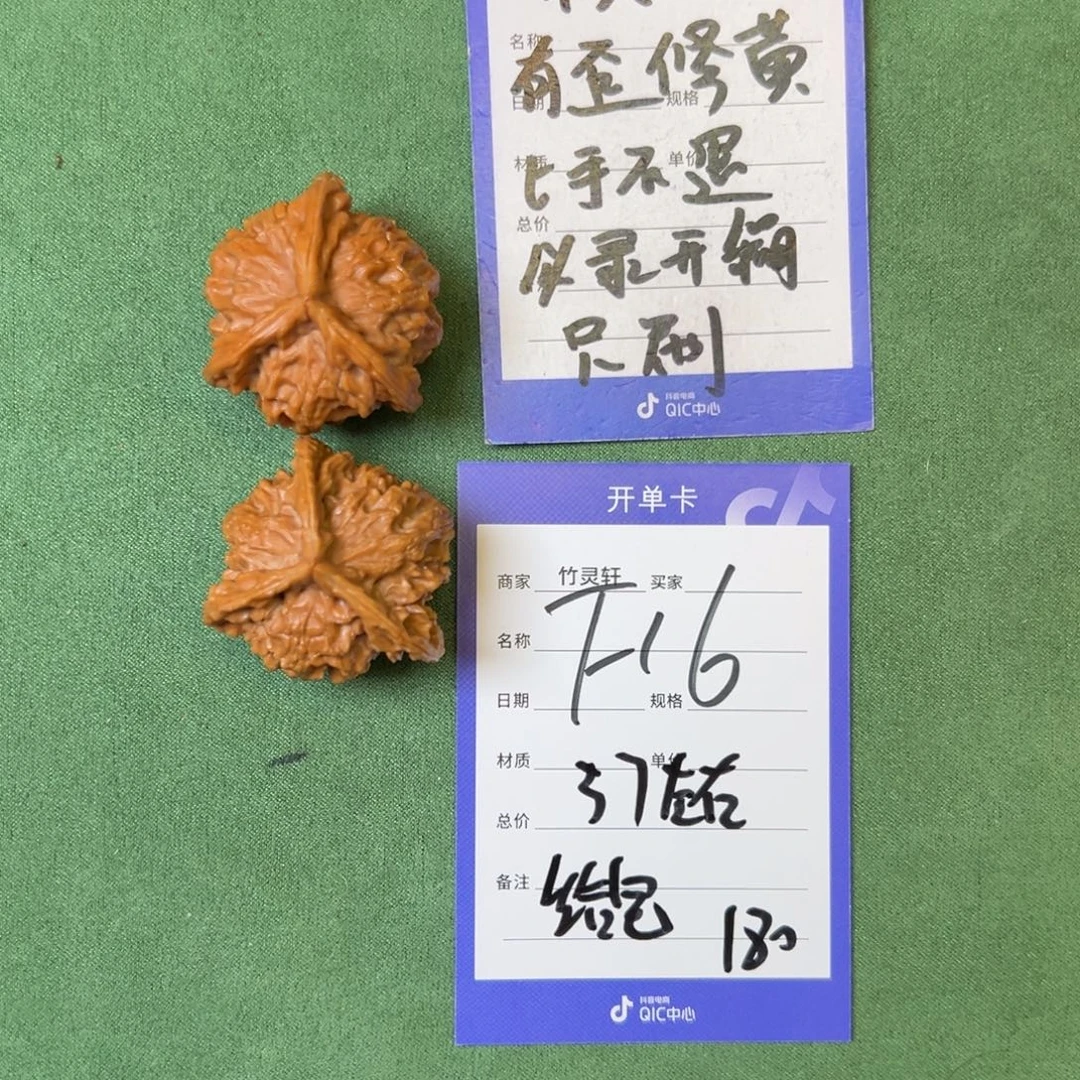 名称
有歪修黄
日期 规格
材质 单价
上手不退
总价
以录开绷
只刷
抖音电商
QIC中心
开单卡
商家 竹灵轩 买家
名称
T-16
日期 规格
材质 单价
37左右
总价
备注
180
抖音电商
QIC中心